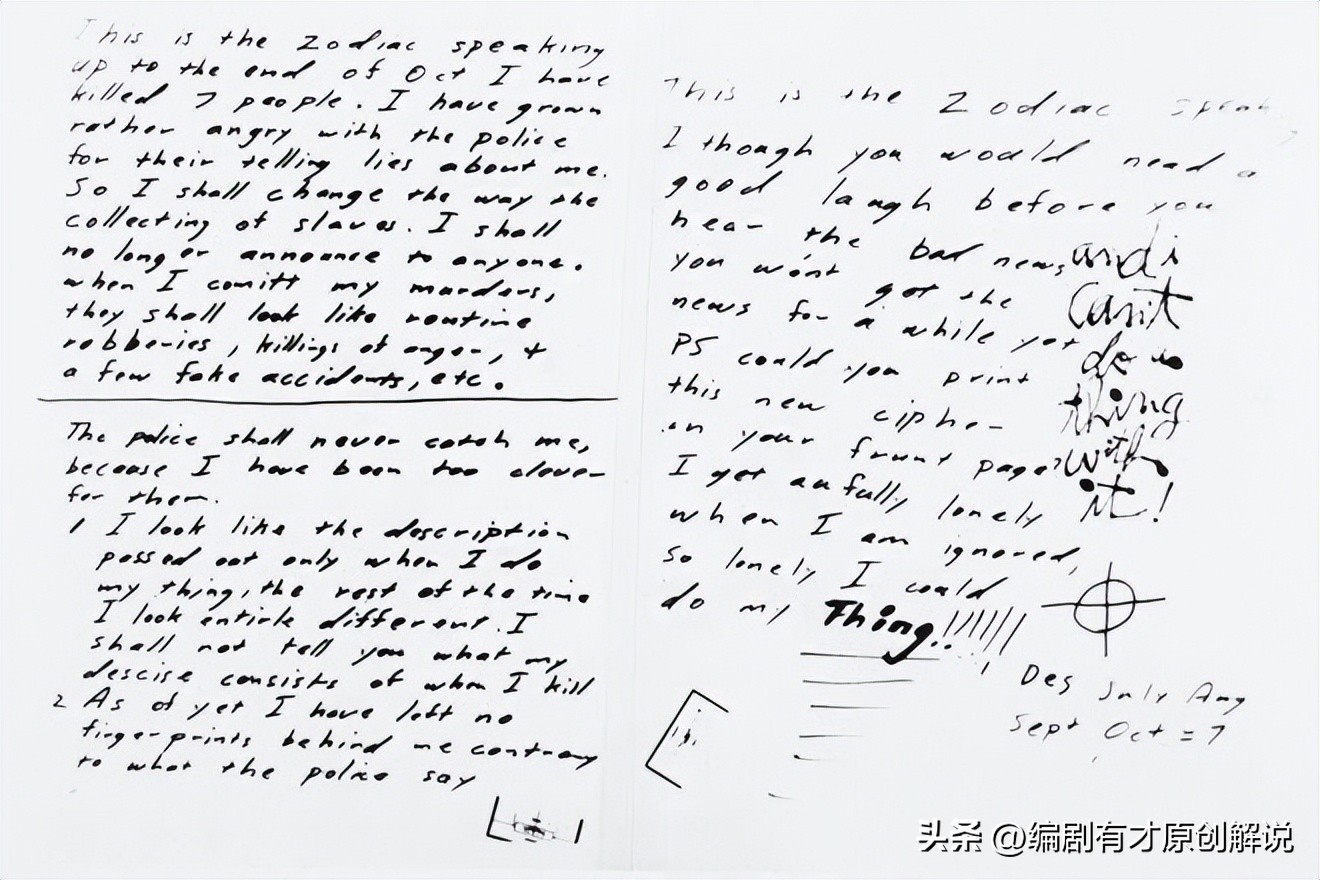 This is the Zodiac speaking
up to the end of Oct I have
killed 7 people. I have grown
rather angry with the police
for their telling lies about me.
So I shall change the way the
collecting of slaves. I shall
no longer announce to anyone.
when I comitt my murders,
they shall look like routine
robberies, killings of anger, +
a few fake accidents, etc.
The police shall never catch me,
because I have been too clever
for them.
1 I look like the description
passed out only when I do
my thing, the rest of the time
I look entirle different. I
shall not tell you what my
descise consists of when I kill
2 As of yet I have left no
fingerprints behind me contrary
to what the police say
This is the Zodiac speak
I though you would nead a
good laugh before you
hear the bad news
you won't get the
news for a while yet
PS could you print
this new cipher
on your frunt page?
I get aufully lonely
when I am ignored,
so lonely I could
do my Thing!!!!!!
and i
can't
do a
thing
with
it!
Des July Aug
Sept Oct = 7
头条 @编剧有才原创解说